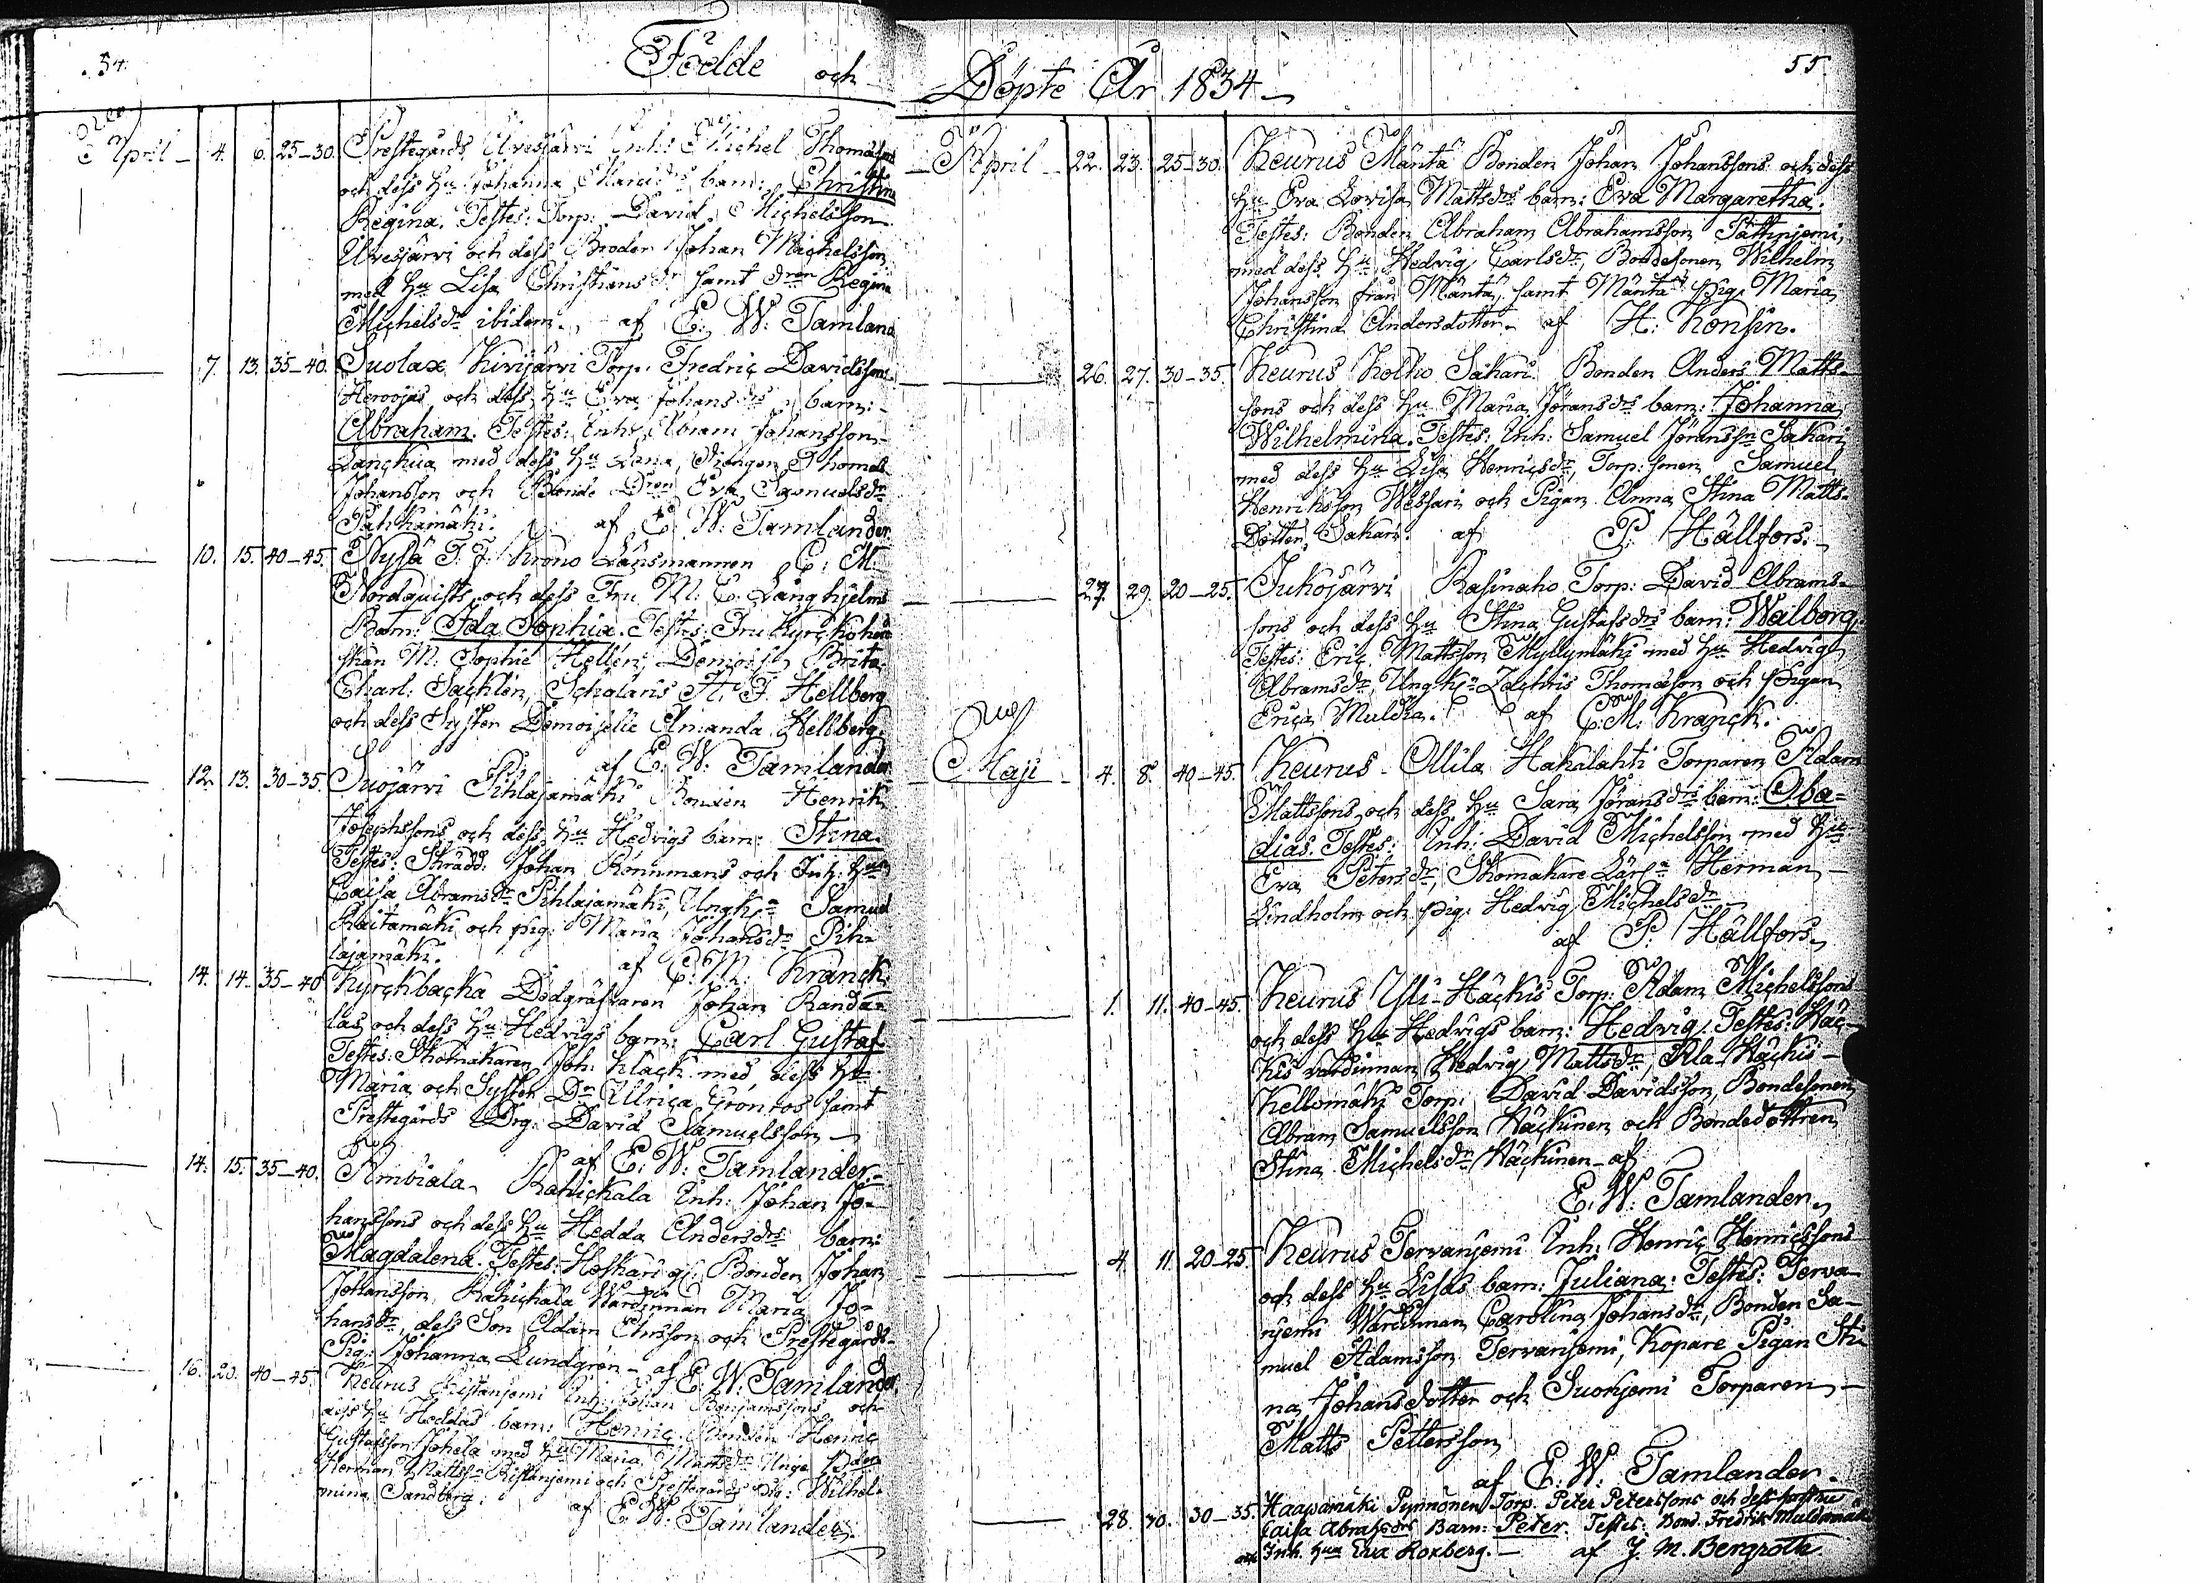 54.
Födde och
April 4. 6. 25-30. Prestegårds Uvesjärvi Inh: Michel Thomæssons
och dess Hu Johanna Marci drs barn: Christina
Regina. Testes: Torp: David Michelsson
Uvesjärvi och dess Broder Johan Michelsson
med Hu Lisa Christians dr samt dren Regina
Michelsdr ibidem. af E. W: Tamland
7. 13. 35-40. Suolax Kivijärvi Torp: Fredric Davidssons
och dess Hu Eva Johansdrs barn:
Abraham. Testes: Inhs Abram Johansson
med dess Hu Lena, Drängen Thomas
Johansson och Bonde Dren Eva Samuelsdr
Pahkamäki. af E. W. Tamlander
10. 15. 40-45. Nyssä T. f. Krono Länsmannen C: M:
Nordquists och dess Fru M: C. Långhjelms
Barn: Ida Sophia. Testes: Fru Kyrckoher
skan M: Sophie Hellén, Demoiselle Brita
Charl: Sacklén, Scholaris H. F. Hellberg
och dess Syster Demoiselle Amanda Hellberg.
af E. W: Tamlander
12. 13. 30-35. Suojärvi Pihlajamäki Bonden Henrik
Josephssons och dess Hu Hedvigs barn: Stina.
Testes: Skrädd: Johan Rönnmans och Inh: Hun
Caisa Abramsdr Pihlajamäki, Ungkn Samuel
Raitamäki och pig: Maria Johansdr Pih-
lajamäki. af C. M: Kranck
14. 14. 35-40 Kyrckbacka Dödgräfvaren Johan Randa-
las och dess Hu Hedvigs barn: Carl Gustaf
Testes: Skomakaren Joh: Klack med dess Hu
Maria och Syster Dr Ullrica Grönros samt
Prestegårds Drg: David Samuelsson
af E. W. Tamlander.
14. 15. 35-40. Ambiala Rahickala Inh: Johan Jo-
hanssons och dess Hu Hedda Andersdrs barn:
Magdalena. Testes: Hoskari gl: Bonden Johan
Johansson, Rahickala Wärdinnan Maria Jo-
hansdr, dess Son Adam Ehrsson och Prestegårds
Pig: Johanna Lundgrén - af E. W. Tamlander.
16. 20. 40-45. Keurus Ristanjemi Inh: Johan Benjamssons och
dess Hu Heddas barn: Henric. Bonden Henric
Gustafsson Johela med Hu Maria Mattsdr Unge Bden
Herman Mattssn Ristanjemi och Prestegårds Pig: Wilhel-
mina Sandberg. af E. W. Tamlander.
55.
Döpte År 1834
April 22. 23. 25-30. Keurus Mänttä Bonden Johan Johanssons och dess
Hu Eva Lovisa Mattsdrs barn: Eva Margaretha.
Testes: Bonden Abraham Abrahamsson Pättinjemi,
med dess Hu Hedvig Carlsdr, Bondesonen Wilhelm
Johansson från Mänttä, samt Mänttä pig: Maria
Christina Andersdotter - af H: Konsin.
26. 27. 30-35. Keurus Kolho Sakari Bonden Anders Matts-
sons och dess Hu Maria Jöransdrs barn: Johanna
Wilhelmina. Testes: Inh: Samuel Jöranssn Sakari
med dess Hu Lisa Henricsdr, Torp: sonen Samuel
Henriksson Wessari och Pigan Anna Stina Matts-
Dotter Sakari. af P. Hällfors.
27. 29. 20-25. Jukojärvi Rasinaho Torp: David Abrams-
sons och dess Hu Stina Gustafsdrs barn: Walborg.
Testes: Eric Mattsson Myllymäki med Hu Hedvig
Abramsdr, Ungkn Zachris Thomæsson och Pigan
Erica Muldia. af C. M. Kranck.
Maji 4. 8. 40-45. Keurus Ollila Hakalahti Torparen Adam
Mattssons och dess Hu Sara Jöransdrs barn: Oba-
dias. Testes: Inh: David Michelsson med Hu
Eva Petersdr, Skomakare Lärln Herman
Lindholm och Pig: Hedvig Michelsdr
af P. Hällfors
1. 11. 40-45. Keurus Yli-Häckis Torp: Adam Michelssons
och dess Hu Hedvigs barn: Hedvig. Testes: Häc-
kis värdinnan Hedvig Mattsdr, Ala Häckis
Kellomäki Torp: David Davidsson, Bondesonen
Abram Samuelsson Häckinen och Bondedottren
Stina Michelsdr Häckinen af
E. W. Tamlander
4. 11. 20-25. Keurus Tervanjemi Inh: Henric Henricssons
och dess Hu Lisas barn: Juliana: Testes: Terva-
njemi Wärdinnan Carolina Johansdr, Bonden Sa-
muel Adamsson Tervanjemi, Kopare Pigan Sti
na Johansdotter och Suonjemi Torparen
Matts Pettersson
af E. W. Tamlander.
28. 30. 30-35. Haapamäki Pynnönen Torp. Peter Peterssons och dess hustru
Caisa Abrahsdrs Barn: Peter. Testes: Bond. Fredrik Muldamäki
och Inh. Hun Eva Roxberg. - af J. M. Bergroth